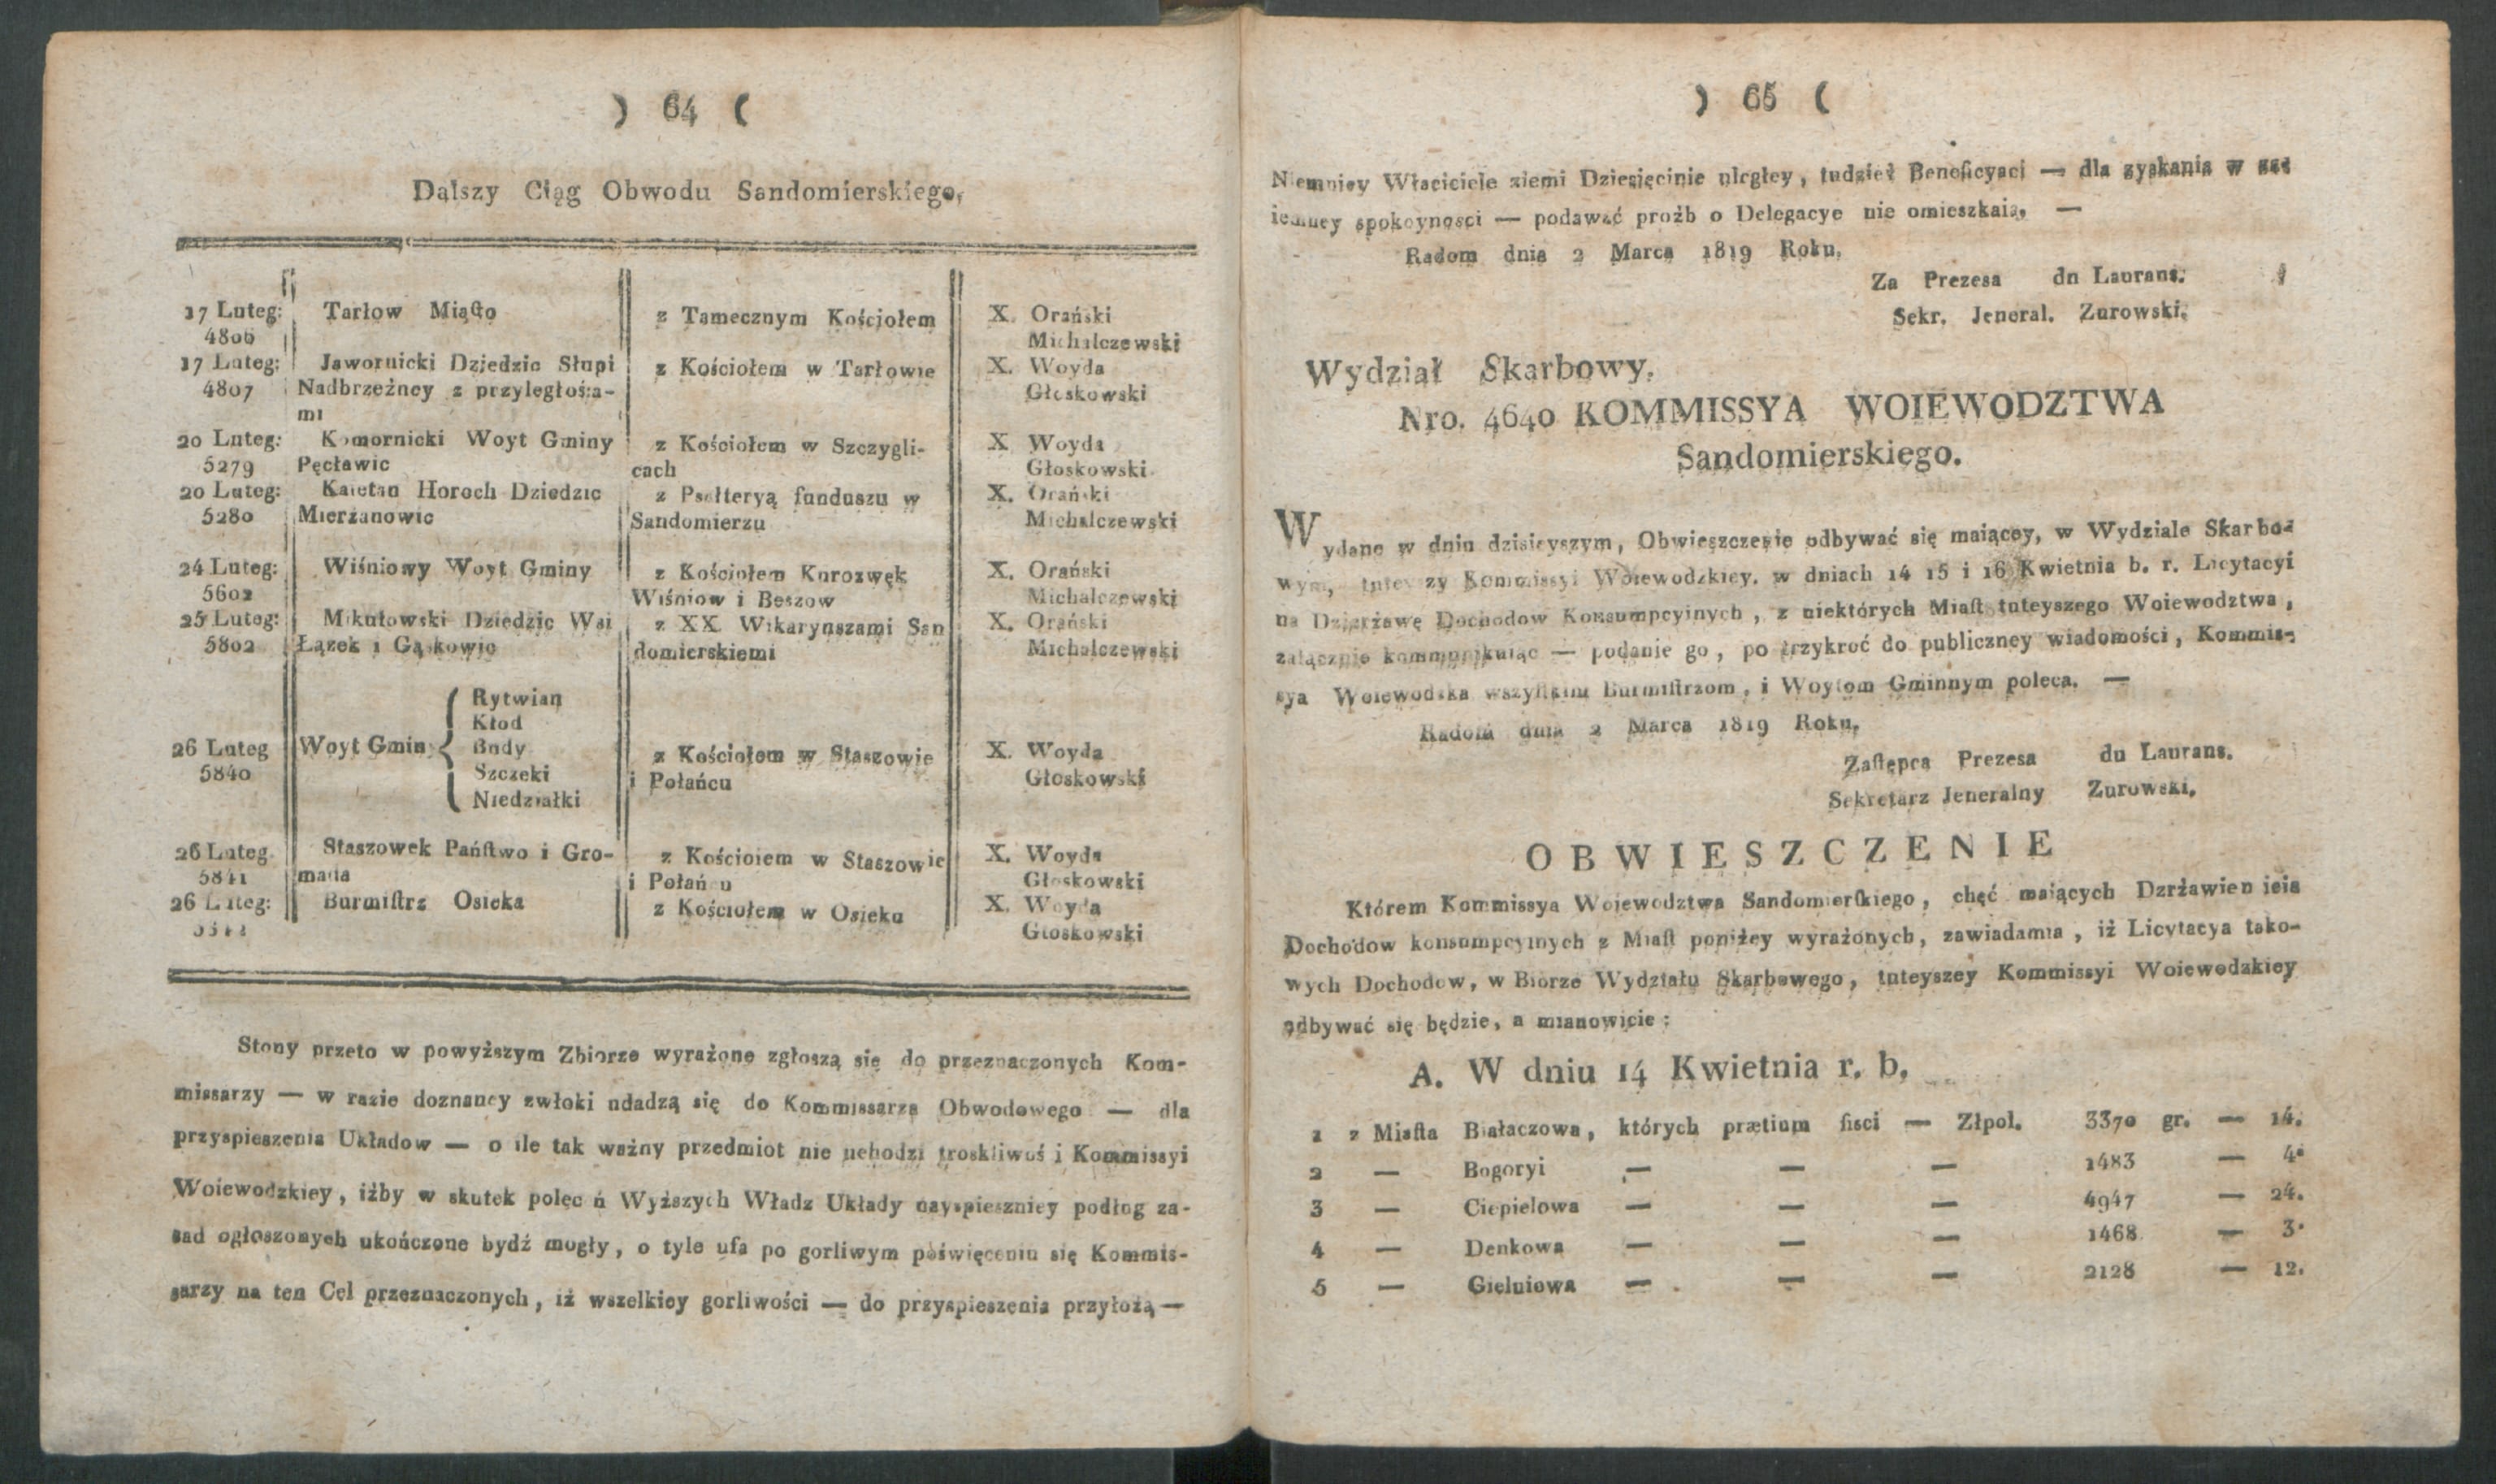 ) 64 (
Dalszy Ciąg Obwodu Sandomierskiego,
17 Luteg: Tarłow Miasto z Tamecznym Kościołem X. Orański
4806 Michalczewski
17 Luteg: Jawornicki Dziedzic Słupi z Kościołem w Tarłowie X. Woyda
4807 Nadbrzeżney z przyległościa- Głoskowski
mi
20 Luteg: Komornicki Woyt Gminy z Kościołem w Szczygli- X Woyda
5279 Pęcławic cach Głoskowski
20 Luteg: Kaietan Horoch Dziedzic z Psałteryą funduszu w X. Orański
5280 Mierzanowic Sandomierzu Michalczewski
24 Luteg: Wiśniowy Woyt Gminy z Kościołem Kurozwęk X. Orański
5602 Wiśniow i Beszow Michalczewski
25 Luteg: Mikułowski Dziedzic Wsi z XX. Wikaryuszami San X. Orański
5802 Łązek i Gąskowic domierskiemi Michalczewski
Rytwian
Kłod
26 Luteg Woyt Gmin Budy z Kościołem w Staszowie X. Woyda
5840 Szczeki i Połańcu Głoskowski
Niedziałki
26 Luteg. Staszowek Państwo i Gro- z Kościołem w Staszowie X. Woyda
5841 mada i Połańcu Głoskowski
26 Luteg: Burmistrz Osieka z Kościołem w Osieku X. Woyda
Głoskowski
Strony przeto w powyższym Zbiorze wyrażone zgłoszą się do przeznaczonych Kom-
missarzy — w razie doznaney zwłoki udadzą się do Kommissarza Obwodowego — dla
przyspieszenia Układow — o ile tak ważny przedmiot nie uchodzi troskliwości Kommissyi
Woiewodzkiey, iżby w skutek poleceń Wyższych Władz Układy nayspieszniey podług za-
sad ogłoszonych ukończone bydź mogły, o tyle ufa po gorliwym poświęceniu się Kommis-
sarzy na ten Cel przeznaczonych, iż wszelkiey gorliwości — do przyspieszenia przyłożą —
) 65 (
Niemniey Właściciele ziemi Dziesięcinie uległey, tudzież Beneficyaci — dla zyskania w
spokoyności — podawać proźb o Delegacye nie omieszkaią. —
Radom dnia 2 Marca 1819 Roku.
Za Prezesa du Laurans.
Sekr. Jeneral. Zurowski.
Wydział Skarbowy.
Nro. 4640 KOMMISSYA WOIEWODZTWA
Sandomierskiego.
Wydane w dniu dzisieyszym, Obwieszczenie odbywać się maiącey, w Wydziale Skarbo-
wym, tuteyszy Kommissyi Woiewodzkiey. w dniach 14 15 i 16 Kwietnia b. r. Licytacyi
na Dzierżawę Dochodow Konsumpcyinych, z niektórych Miast tuteyszego Woiewodztwa,
załącznie kommunikuiąc — podanie go, po trzykroć do publiczney wiadomości, Kommis-
sya Woiewodzka wszystkim Burmistrzom, i Woytom Gminnym poleca. —
Radom dnia 2 Marca 1819 Roku.
Zastępca Prezesa du Laurans.
Sekretarz Jeneralny Zurowski.
OBWIESZCZENIE
Którem Kommissya Woiewodztwa Sandomierskiego, chęć maiących Dzrżawienieia
Dochodow konsumpcyinych z Miast poniżey wyrażonych, zawiadamia, iż Licytacya tako-
wych Dochodow, w Biorze Wydziału Skarbowego, tuteyszey Kommissyi Woiewodzkiey
odbywać się będzie, a mianowicie:
A. W dniu 14 Kwietnia r. b.
1 z Miasta Białaczowa, których prætium fisci — Złpol. 3370 gr. — 14.
2 — Bogoryi — — — 1483 — 4.
3 — Ciepielowa — — — 4947 — 24.
4 — Denkowa — — — 1468 — 3.
5 — Gielniowa — — — 2128 — 12.